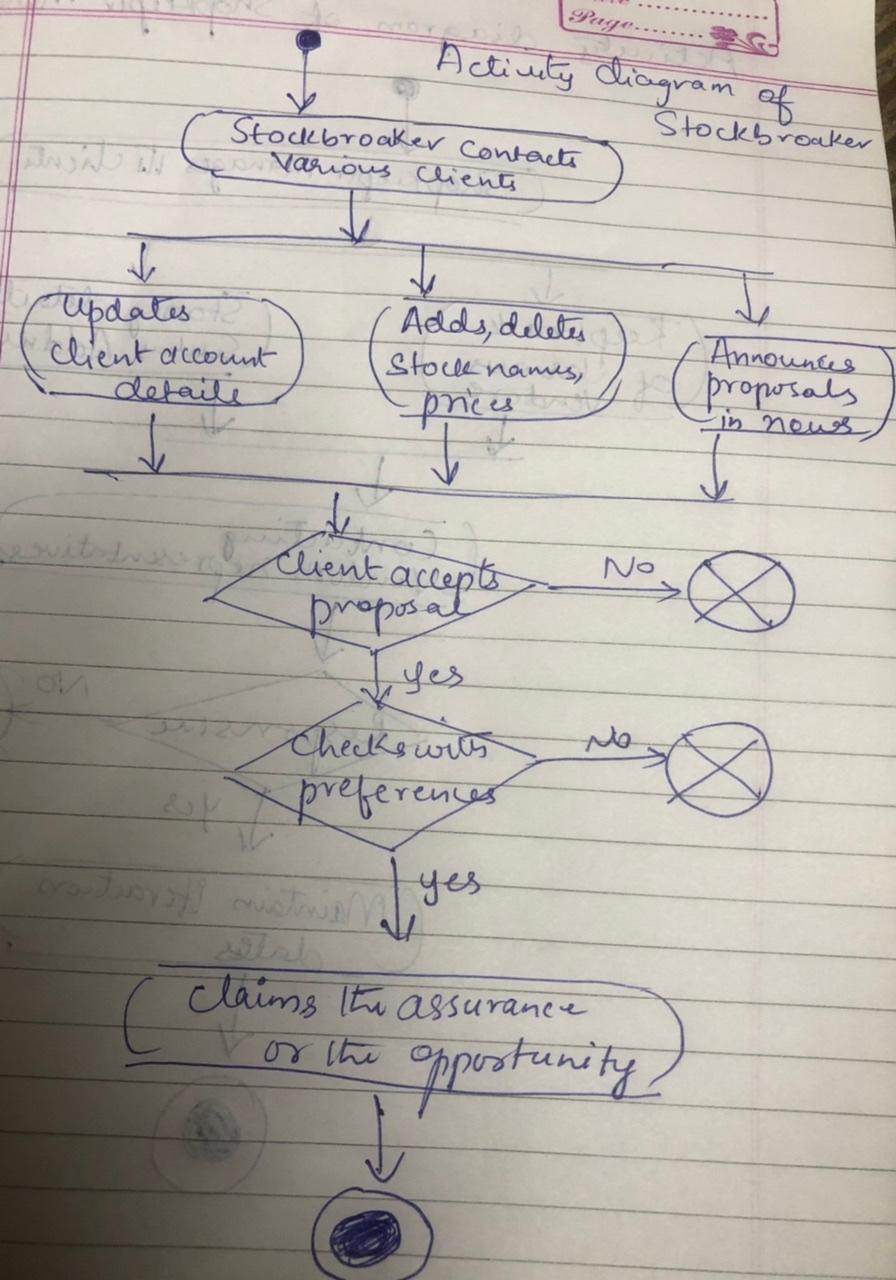 Page
Activity diagram of
Stockbroaker
Stockbroaker Contacts
various clients
Updates
client account
details
Adds, deletes
Stock names,
prices
Announces
proposals
in news
Client accepts
proposal
No
yes
Checks with
preferences
No
yes
Claims the assurance
or the opportunity